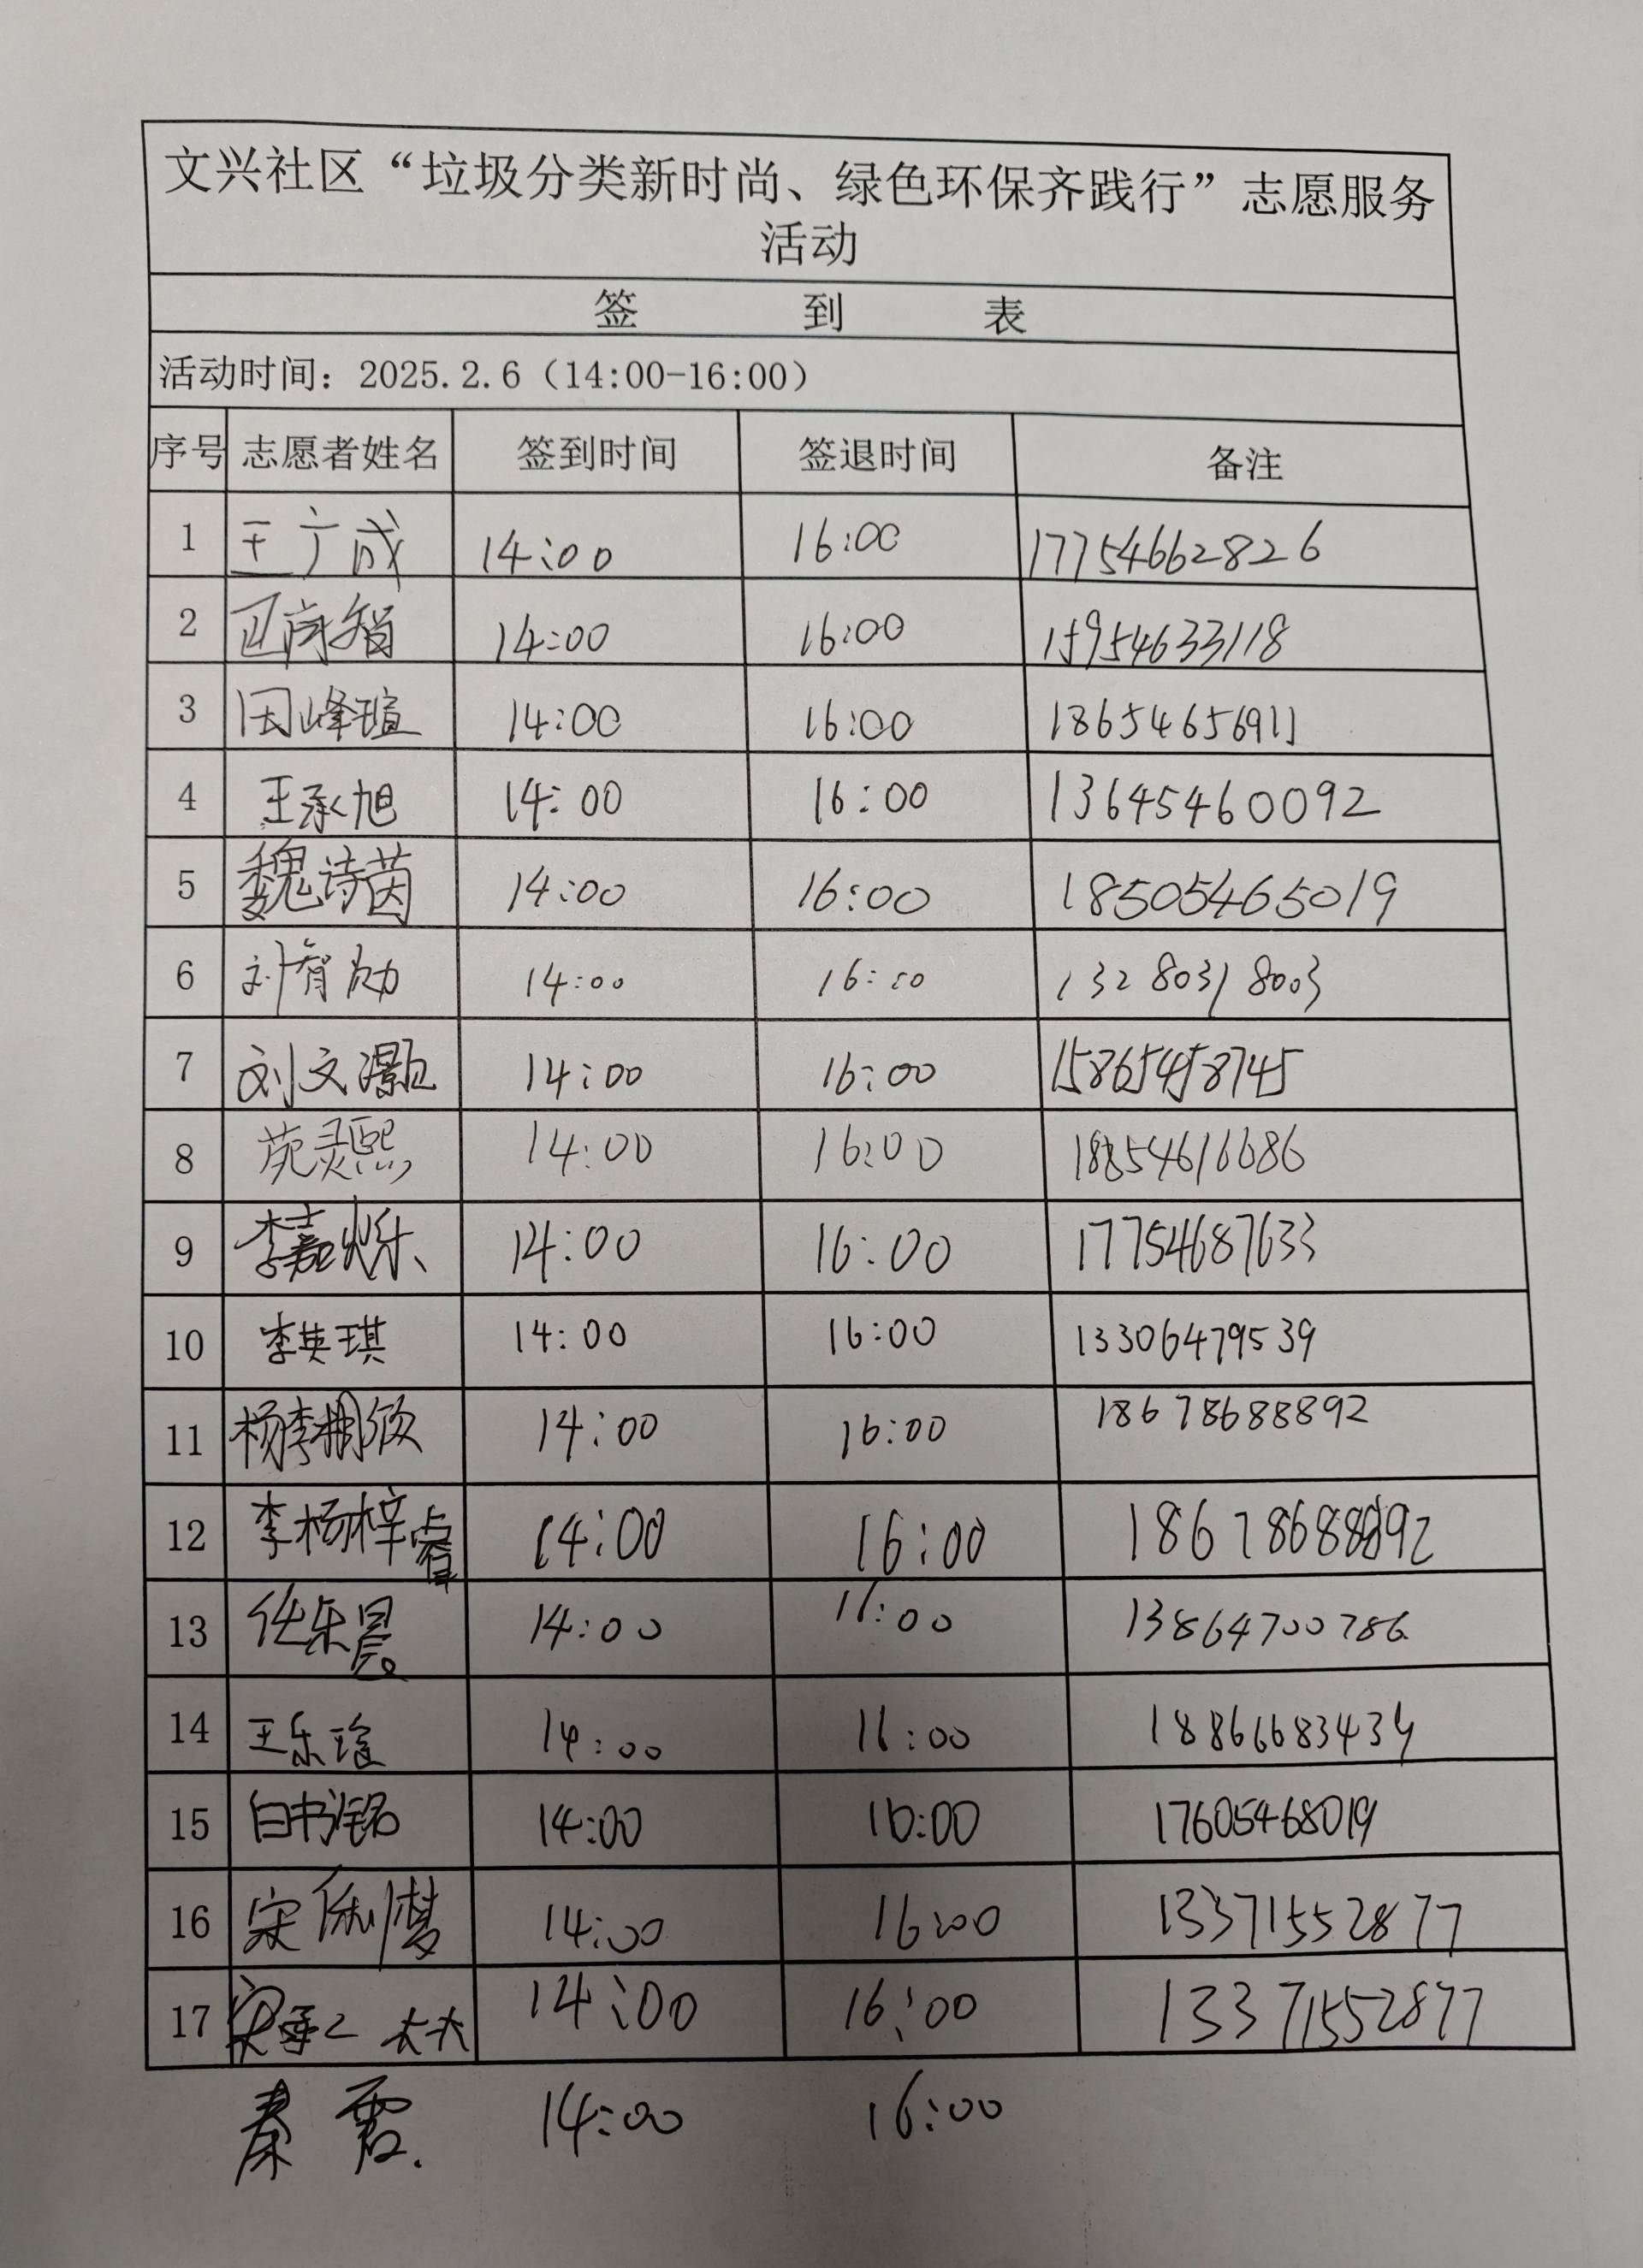 文兴社区“垃圾分类新时尚、绿色环保齐践行”志愿服务
活动
签 到 表
活动时间：2025.2.6（14:00-16:00）
序号 志愿者姓名 签到时间 签退时间 备注
1 王广成 14:00 16:00 17754662826
2 14:00 16:00 15954633118
3 田峰瑄 14:00 16:00 18654656911
4 王承旭 14:00 16:00 13645460092
5 魏诗茵 14:00 16:00 18505465019
6 14:00 16:00 13280318003
7 刘文灏 14:00 16:00 15865458745
8 苑灵熙 14:00 16:00 18854616686
9 李嘉烁 14:00 16:00 17754687633
10 李英琪 14:00 16:00 13306479539
11 14:00 16:00 18678688892
12 李杨梓睿 14:00 16:00 18678688892
13 任乐晨 14:00 16:00 13864700786
14 王乐瑄 14:00 16:00 18866683434
15 白书铭 14:00 16:00 17605468019
16 14:00 16:00 13371552877
17 14:00 16:00 13371552877
秦霞. 14:00 16:00